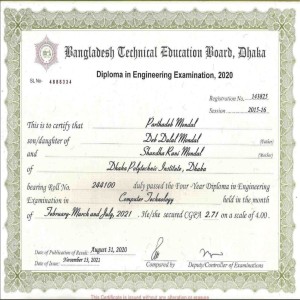 Bangladesh Technical Education Board, Dhaka
Diploma in Engineering Examination, 2020
SL.No 4888334
Registration No. 143825
Session 2015-16
This is to certify that Parthadeb Mondal
son/daughter of Deb Dulal Mondal (Father)
and Shandha Rani Mondal (Mother)
of Dhaka Polytechnic Institute, Dhaka
bearing Roll No. 244100 duly passed the Four-Year Diploma in Engineering
Examination in Computer Technology held in the month
of February-March and July, 2021. He/she secured CGPA 2.71 on a scale of 4.00.
Date of Publication of Result August 31, 2020
Date of Issue November 15, 2021
Compared by
Deputy/Controller of Examinations
This Certificate is issued without any alteration or erasure